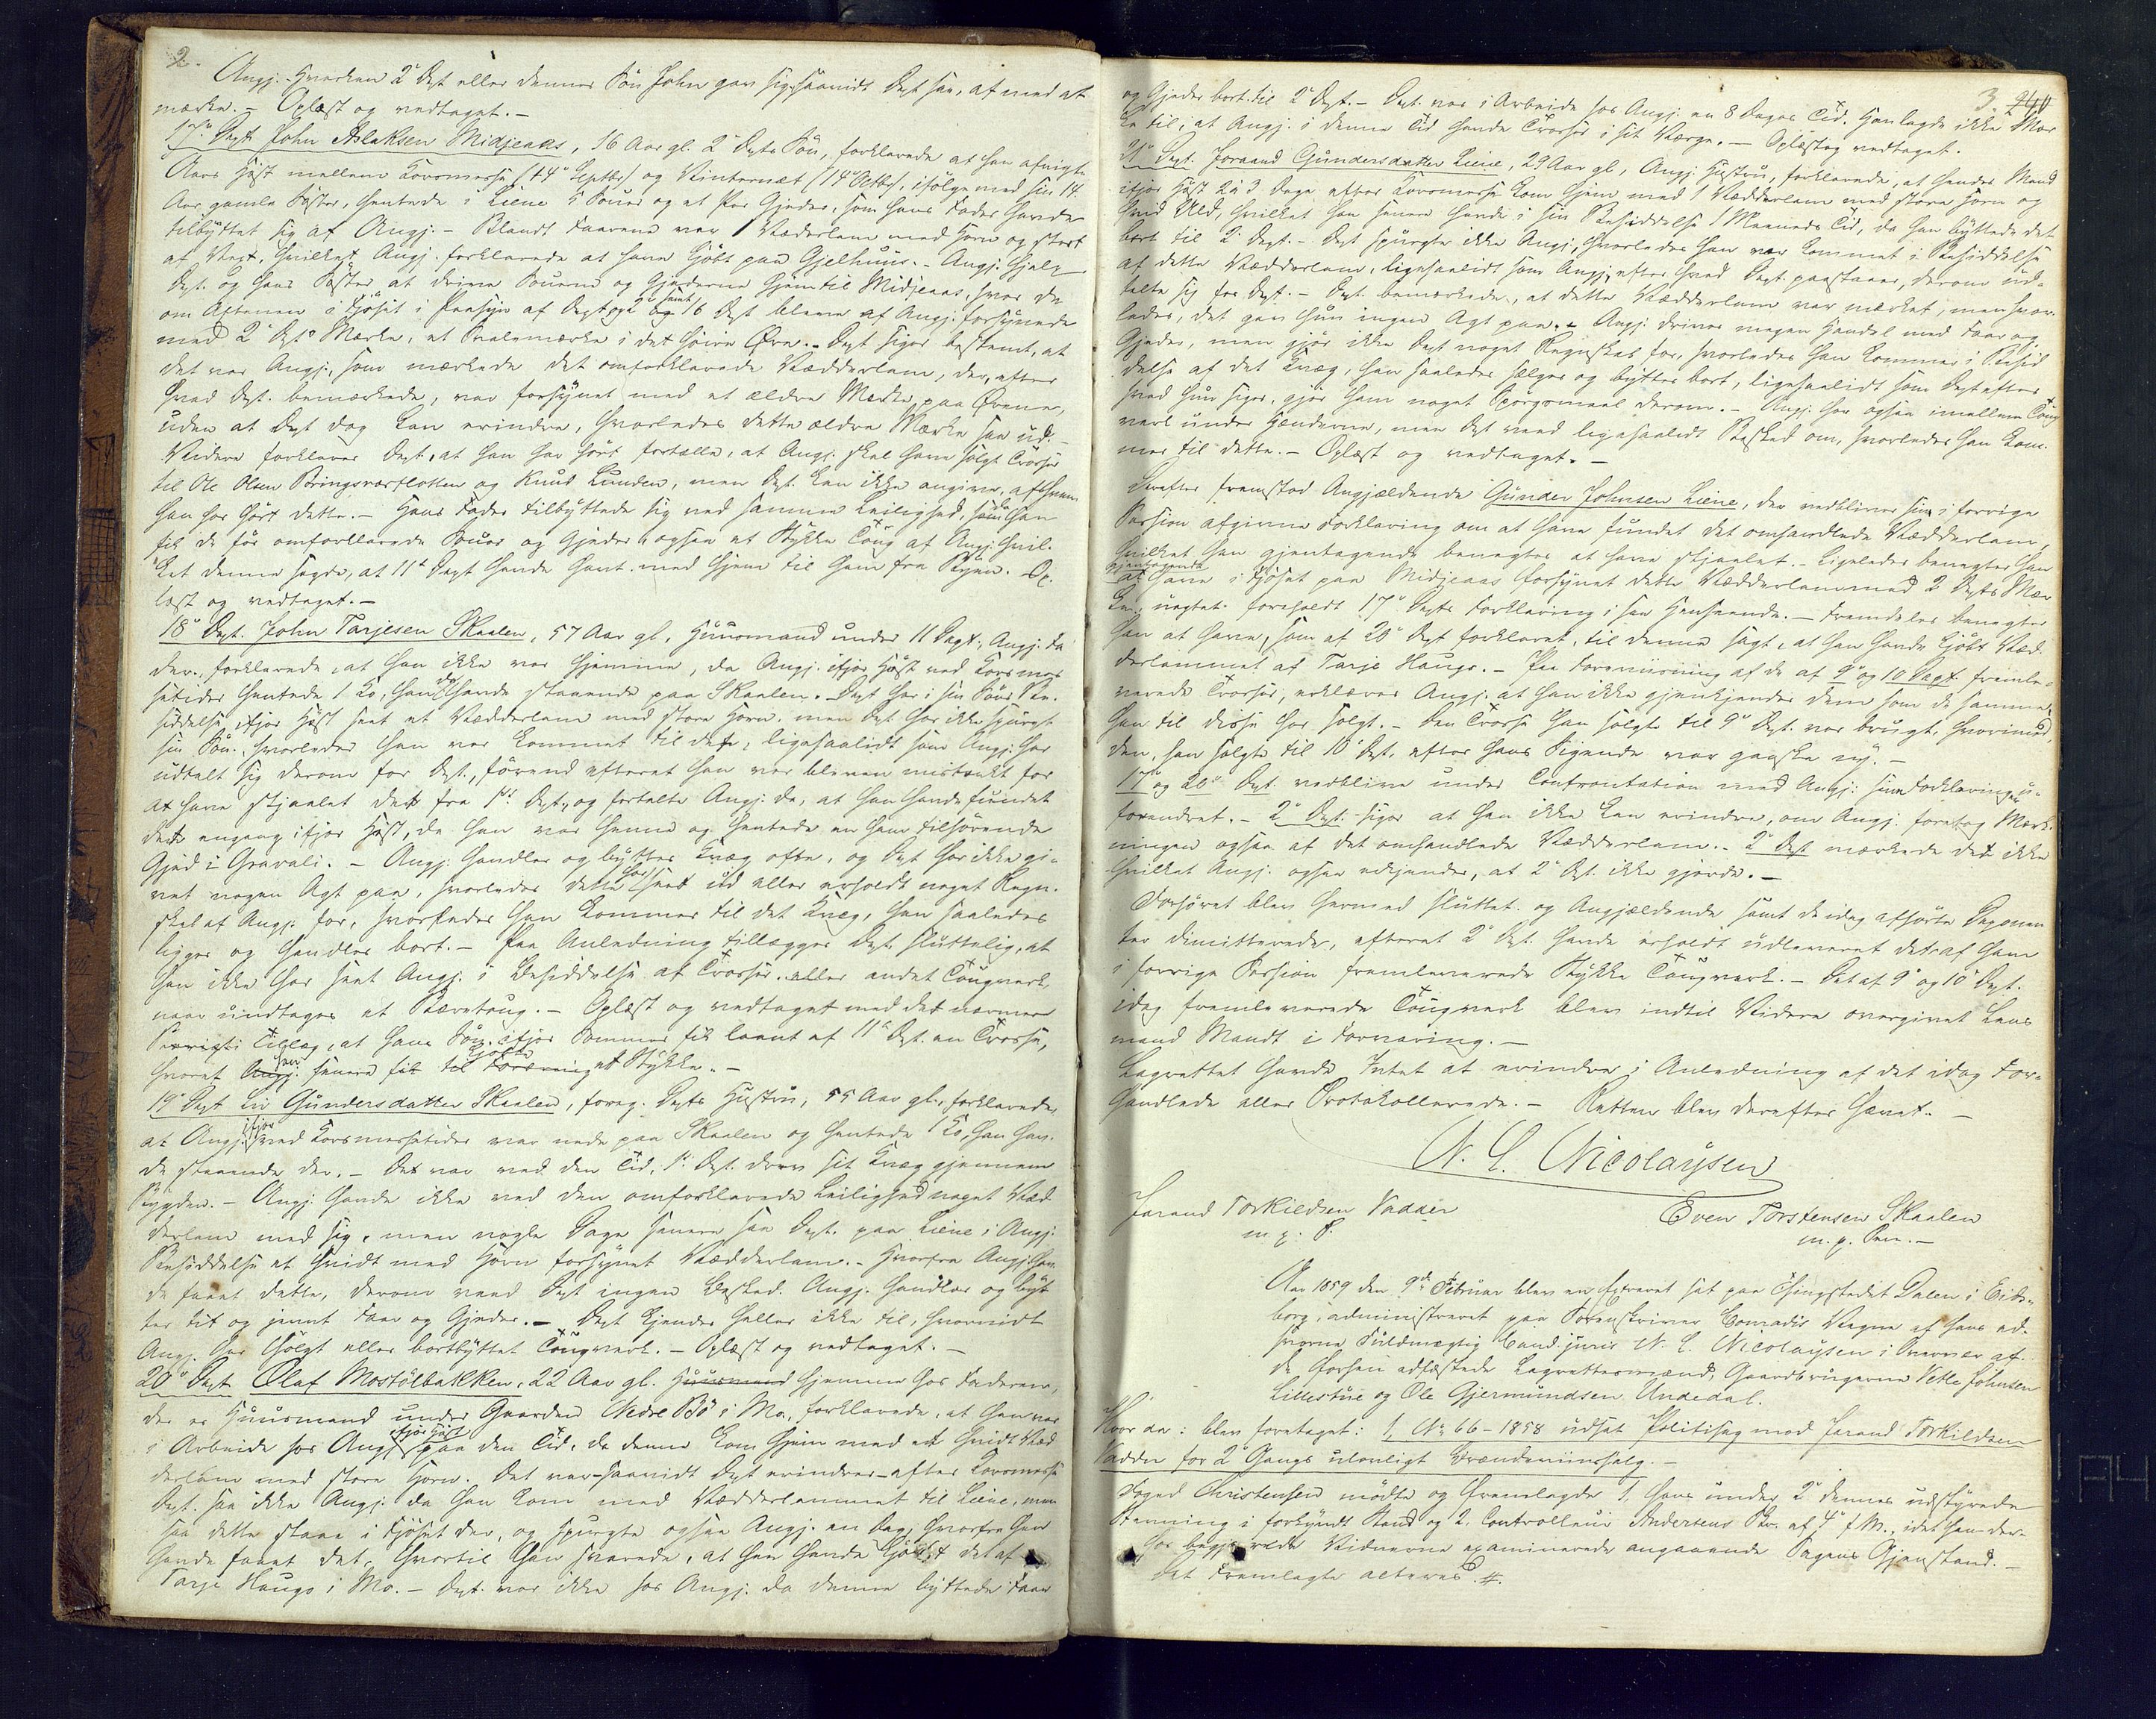 2.
Angj. Hverken 2' Dept eller dennes Søn John gav sig, saavidt Dept saa, af med at
mærke. - Oplæst og vedtaget. -
17' Dept John Aslaksen Midjeaas, 16 Aar gl. 2' Depts Søn, forklarede at han afvigte
Aars Høst mellem Korsmesse (14' Septbr) og Vinternæt (14' Octbr), ifølge med sin 14
Aar gamle Søster, hentede i Liene 4 Souer og et Par Gjeder, som hans Fader havde
tilbyttet sig af Angj. - Blandt Faarene var 1 Vædderlam med Horn og stort
af Vext, hvilket Angj. forklarede at have kjöbt paa Gjelhuus. - Angj. hjalp
Dept. og hans Søster at drive Souerne og Gjederne hjem til Midjeaas, hvor de
om Aftenen i Fjöset i Paasyn af Dept og 2' samt 16 Dept bleve af Angj. forsynede
med 2' Dpts Mærke, et Svalemærke i det høire Øre. - Dept siger bestemt, at
det var Angj., som mærkede det omforklarede Vædderlam, der, efter
hvad Dept. bemærkede, var forsynet med et ældre Mærke paa Ørene,
uden at Dept dog kan erindre, hvorledes dette ældre Mærke saa ud. -
Videre forklarer Dept., at han har hört fortælle, at Angj. skal have solgt Trosser
til Ole Olsen Bringsverflotten og Knut Lunden, men Dpt. kan ikke angive, af hvem
han har hört dette. - Hans Fader tilbyttede sig ved samme Leilighed, som han
fik de før omforklarede Souer og Gjeder, ogsaa et Stykke Toug af Angj. hvil-
ket denne sagde, at 11' Dept havde havt med hjem til ham fra Byen. Op-
læst og vedtaget. -
18' Dept. John Tarjesen Skaalen, 57 Aar gl., Huusmand under 11 Dept., Angj. Fa
der, forklarede, at han ikke var hjemme, da Angj. ifjor Høst ved Korsmes
setider hentede 1 Ko, han der havde staaende paa Skaalen. Dept har i sin Søns Be-
siddelse ifjor Høst seet et Vædderlam med store Horn, men Dpt har ikke spurgt
sin Søn, hvorledes han var kommet til det, ligesaalidt som Angj. har
udtalt sig derom for Dpt., førend efterat han var bleven mistænkt for
at have stjaalet det fra 1st Dept., og fortalte Angj. da, at han havde fundet
det engang ifjor Høst, da han var henne og hentede en ham tilhørende
Gjed i Gravali. - Angj. handler og bytter Kvæg ofte, og Dpt har ikke gi-
vet nogen Agt paa, hvorledes dette har seet ud eller erholdt noget Regn-
skab af Angj. for, hvorledes han kommer til det Kvæg, han saaledes
ligger og handler bort. - Paa Anledning tillægger Dept. sluttelig, at
han ikke har seet Angj. i Besiddelse af Trosser eller andet Tougverk,
naar undtages et Bæretoug. - Oplæst og vedtaget med det nærmere
Tillæg, at hans Søn ifjor Sommer fik laant af 11' Dpt. en Trosse,
hvoraf han senere kjøbte et Stykke. -
19' Dept Liv Gundersdatter Skaalen, foreg. Depts Hustru, 55 Aar gl., forklarede,
at Angj. ifjor ved Korsmessetider var nede paa Skaalen og hentede 1 Ko, han hav-
de staaende der. - Det var ved den Tid, 1' Dpt. drev sit Kvæg gjennem
Bygden. - Angj. havde ikke ved den omforklarede Leilighed noget Væd-
derlam med sig, men nogle Dage senere saa Dept. paa Liene i Angj.
Besiddelse et hvidt med Horn forsynet Vædderlam. - Hvorfra Angj. hav-
de faaet dette, derom veed Dpt ingen Besked. Angj. handler og byt
ter tit og jevnt Faar og Gjeder. - Dept kjender heller ikke til, hvorvidt
Angj. har solgt eller bortbyttet Tougverk. - Oplæst og vedtaget. -
20' Dept. Olaf Mostølbakken, 22 Aar gl. Huusmand hjemme hos Faderen,
der er Huusmand under Gaarden Nedre Bö i Mo, forklarede, at han var
i Arbeide hos Angj. ifjor Høst paa den Tid, da denne kom hjem med et hvidt Væd
derlam med store Horn. Det var - saavidt Dept erindrer - efter Korsmesse
Dept. saa ikke Angj. da han kom med Vædderlammet til Liene, men
saa dette staae i Fjöset der, og spurgte ogsaa Angj. en Dag, hvorfra han
havde faaet det, hvortil han svarede, at han havde kjöbt det af
Tarje Haugo i Mo. - Dept. var ikke hos Angj. da denne byttede Faar
3. 240
og Gjeder bort til 2' Dept. - Dpt. var i Arbeide hos Angj. en 8 Dages Tid. Han lagde ikke Mær
ke til, at Angj. i denne Tid havde Trosser i sit Værge. - Oplæst og vedtaget.
21' Dept. Joraand Gundersdatter Liene, 29 Aar gl, Angj. Hustru, forklarede, at hendes Mand
ifjor Høst 2 à 3 Dage efter Korsmesse kom hjem med 1 Vædderlam med store Horn og
hvid Uld, hvilket han senere havde i sin Besiddelse 1 Maaneds Tid, da han byttede det
bort til 2' Dept. - Dpt spurgte ikke Angj., hvorledes han var kommet i Besiddelse
af dette Vædderlam, ligesaalidt som Angj., efter hvad Dept. paastaaer, derom ud-
talte sig for Dpt. - Dpt. bemærkede, at dette Vædderlam var mærket, men hvor-
ledes, det gav hun ingen Agt paa. - Angj. driver megen Handel med Faar og
Gjeder, men gjør ikke Dept noget Regnskab for, hvorledes han kommer i Besid
delse af det Kvæg, han saaledes sælger og bytter bort, ligesaalidt som Dept efter
hvad hun siger, gjør ham noget Spørgsmaal derom. - Angj. har ogsaa imellem Toug
verk under Hænderne, men Dpt veed ligesaalidt Besked om, hvorledes han kom-
mer til dette. - Oplæst og vedtaget. -
Derefter fremstod Angjældende Gunder Johnsen Liene, der vedbliver sin i forrige
Session afgivne Forklaring om at have fundet det omhandlede Vædderlam,
hvilket han gjentagende benegter at have stjaalet. - Ligeledes benegter han
gjentagende
at have i Fjöset paa Midjeaas forsynet dette Vædderlam med 2' Depts Mær
ke, uagtet foreholdt 17' Depts Forklaring i saa Henseende. - Fremdeles benegter
han at have, som af 20' Dept forklaret, til denne sagt, at han havde kjöbt Væd-
derlammet af Tarje Haugo. - Paa Foreviisning af de af 9' og 10 Dept fremle-
verede Trosser, erklærer Angj. at han ikke gjenkjender dem som de samme,
han til disse har solgt. - Den Trosse han solgte til 9' Dept. var brugt, hvorimod
den, han solgte til 10' Dpt. efter hans Sigende var ganske ny. -
17' og 20' Dept. vedblive under Confrontation med Angj. sine Forklaringer u-
forandret. - 2' Dept. siger at han ikke kan erindre, om Angj. foretog Mærk-
ningen ogsaa af det omhandlede Vædderlam. - 2' Dpt mærkede det ikke
hvilket Angj. ogsaa erkjender, at 2' Dpt. ikke gjorde. -
Forhøret blev hermed sluttet og Angjældende samt de idag afhørte Deponen
ter dimitterede, efterat 2' Dpt. havde erholdt udleveret det af ham
i forrige Session fremleverede Stykke Tougverk. - Det af 9' og 10' Dept.
idag fremleverede Tougverk blev indtil Videre overgivet Lens
mand Mandt i Forvaring. -
Lagrettet havde Intet at erindre i Anledning af det idag For-
handlede eller Protokollerede. - Retten blev derefter hævet. -
N. C. Nicolaysen
Jorand Torkildsen Vadder
m. p. P.
Even Torstensen Skaalen
m. p. Pen. -
Aar 1859 den 9de Februar blev en Extraret sat paa Thingstedet Dalen i Eids-
borg, administreret paa Sorenskriver Conradis Vegne af hans ed-
svorne Fuldmægtig Cand. juris N. C. Nicolaysen i Overvær af
de forhen edfæstede Lagrettesmænd, Gaardbrugerne Vetle Johnsen
Lillestue og Ole Gjermundsen Undedal.
Hvor da: blev foretaget: 1, No 66 - 1858 udsat Politisag mod Jorand Torkildsen
Vadder for 2' Gangs ulovligt Brændeviinssalg. -
Foged Christensen mødte og fremlagde 1, hans under 2' dennes udstyrede
Stevning i forkyndt Stand og 2, Controlleur Andersens Skr. af 4' f. M., idet han der-
hos begjærede Vidnerne examinerede angaaende Sagens Gjenstand. -
Det Fremlagte alteres #.